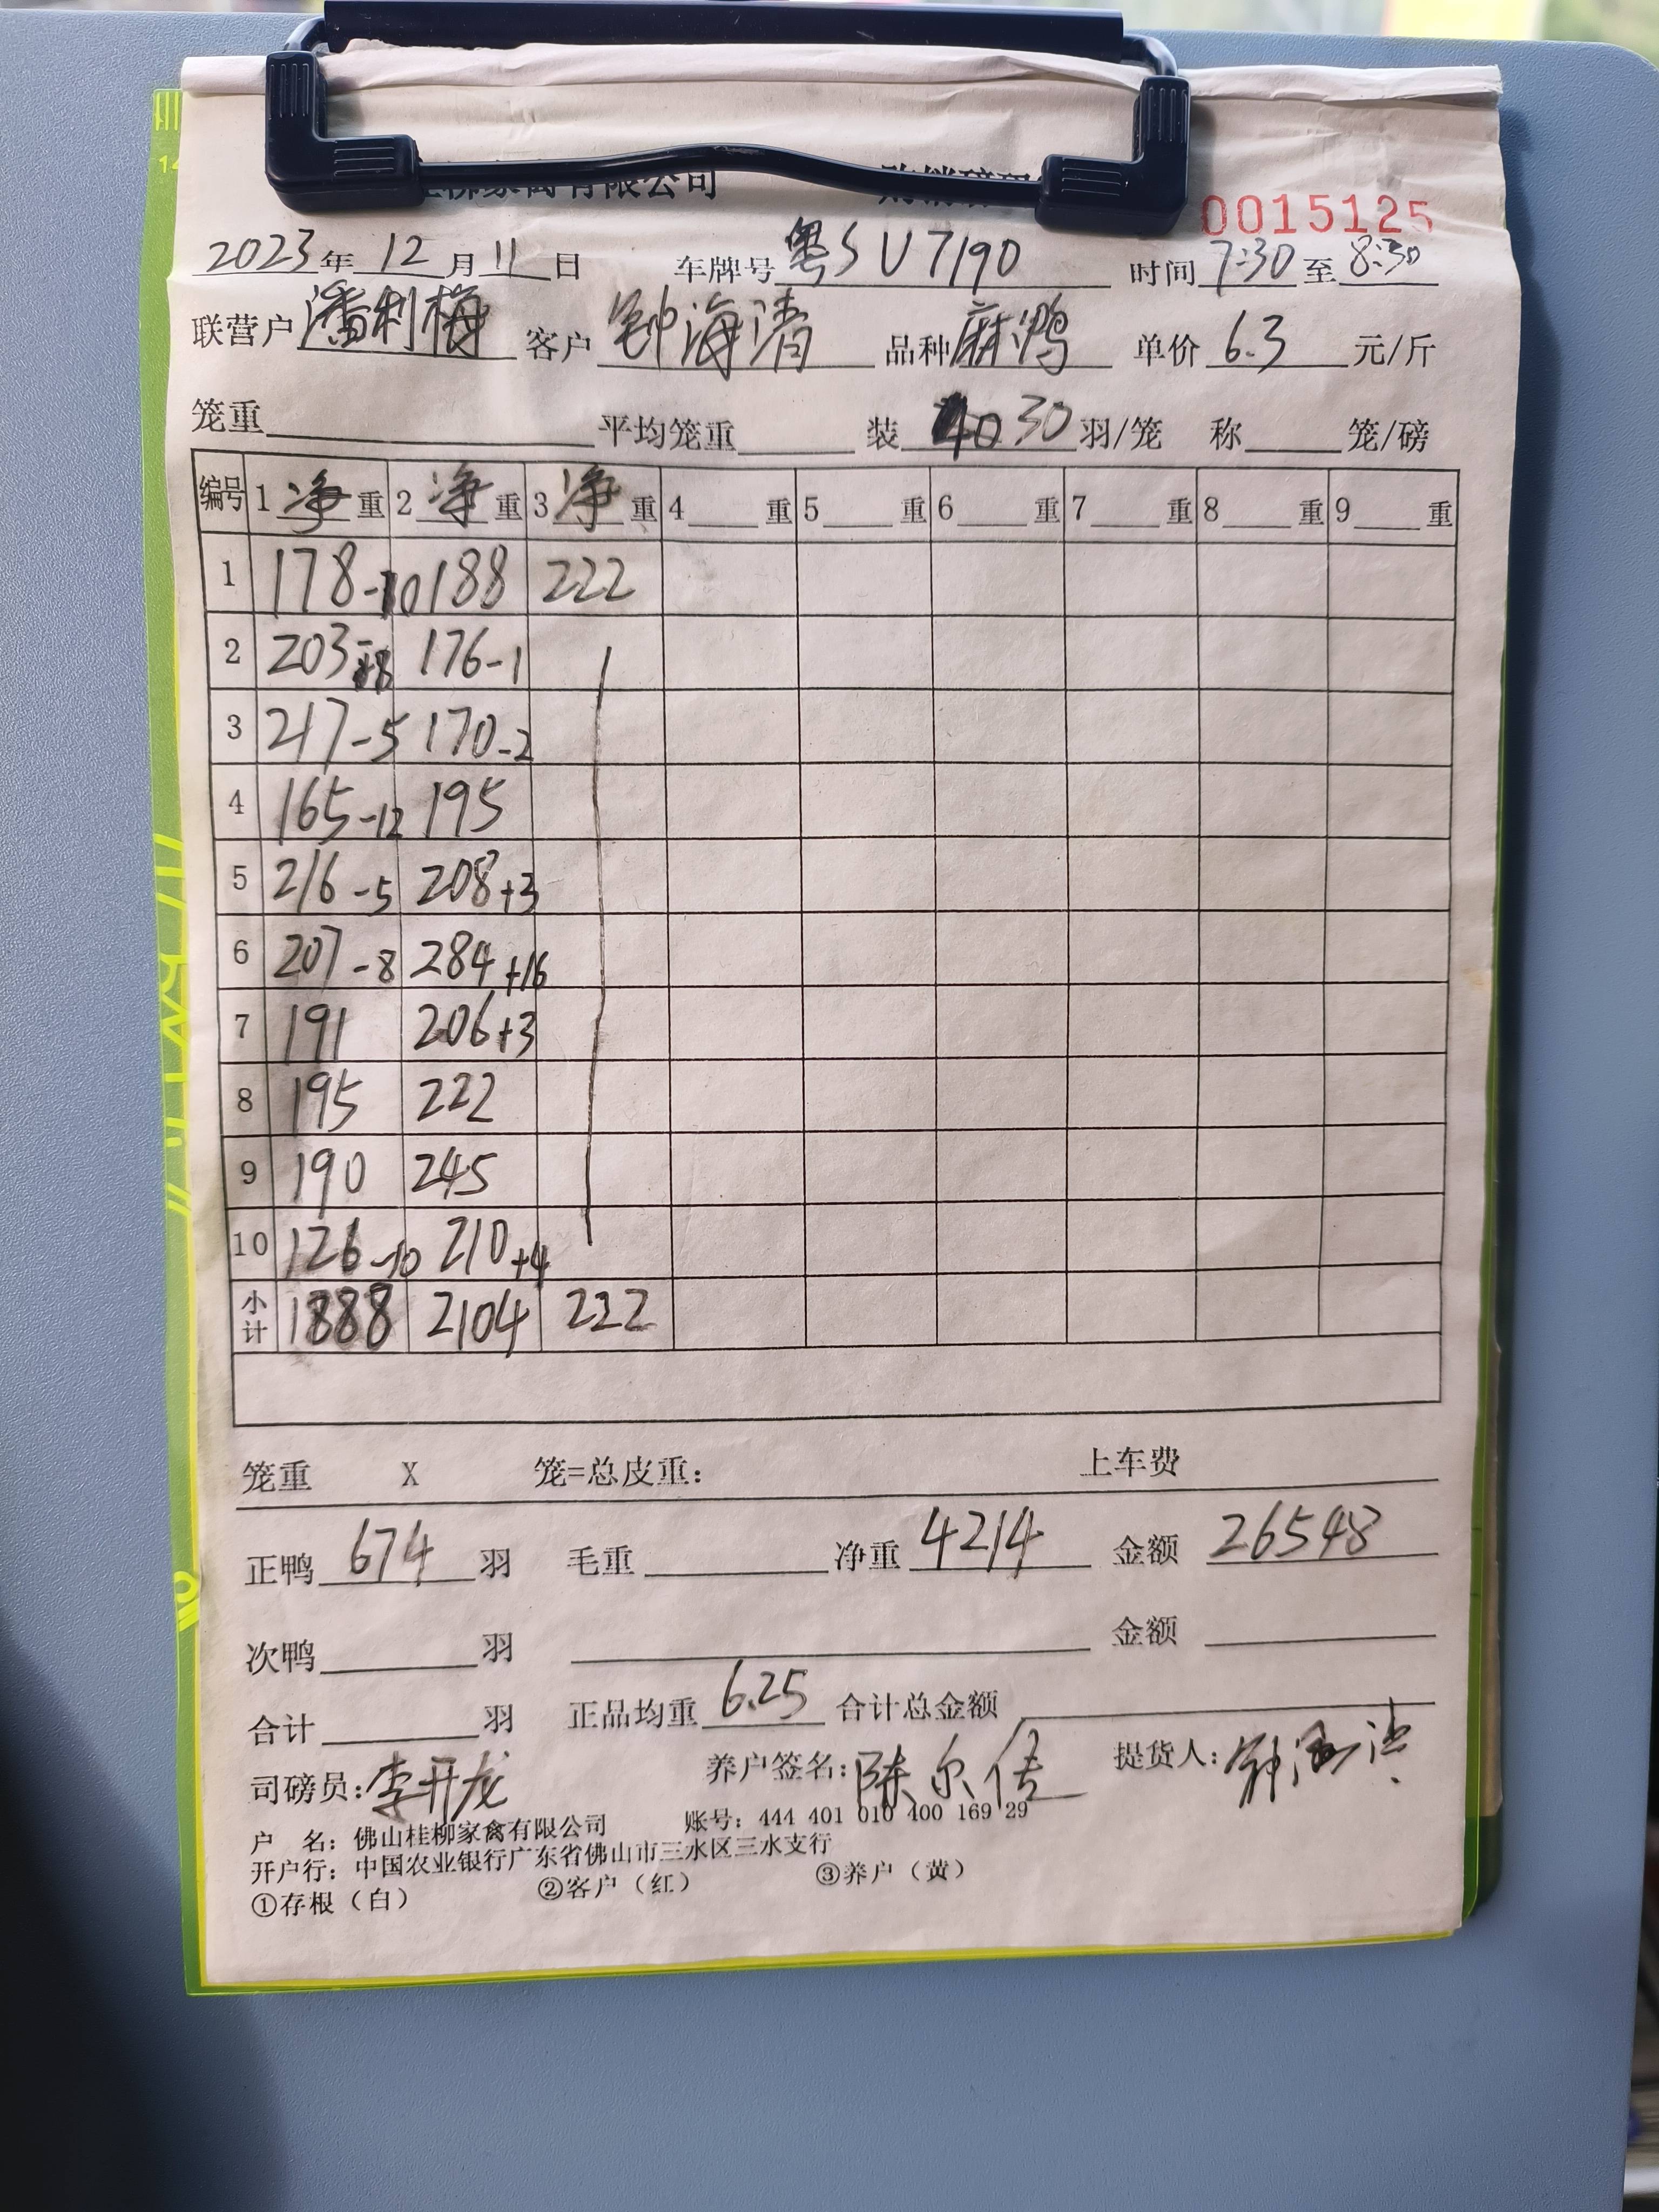 柳家禽有限公司
0015125
2023年 12 月 11 日 车牌号 粤SU7190 时间 7:30 至 8:30
联营户 潘利梅 客户 钟海清 品种 麻鸭 单价 6.3 元/斤
笼重 平均笼重 装 30 羽/笼 称 笼/磅
编号 1 净 重 2 净 重 3 净 重 4 重 5 重 6 重 7 重 8 重 9 重
1 178-10 188 222
2 203-8 176-1
3 217-5 170-2
4 165-12 195
5 216-5 208+3
6 207-8 284+16
7 191 206+3
8 195 222
9 190 245
10 126-10 210+4
小计 1888 2104 222
笼重 X 笼=总皮重: 上车费
正鸭 674 羽 毛重 净重 4214 金额 26548
次鸭 羽 金额
合计 羽 正品均重 6.25 合计总金额
司磅员:李开龙 养户签名: 提货人:
户 名: 佛山桂柳家禽有限公司 账号: 444 401 010 400 169 29
开户行: 中国农业银行广东省佛山市三水区三水支行
①存根(白) ②客户(红) ③养户(黄)